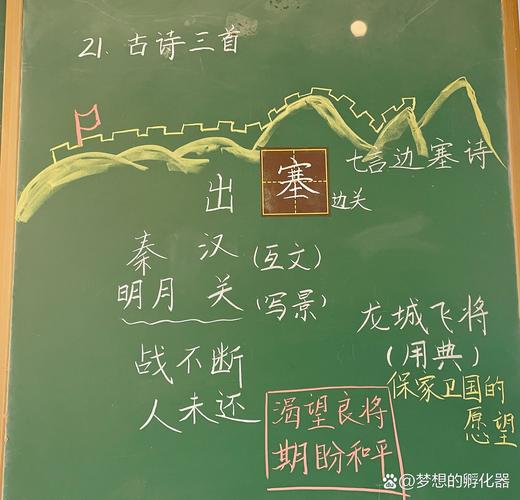 21. 古诗三首
七言边塞诗
出 塞 边关
秦 汉 (互文)
明月 关 (写景)
战不断
人未还
渴望良将
期盼和平
龙城飞将
(用典)
保家卫国的
愿望
@梦想的孵化器